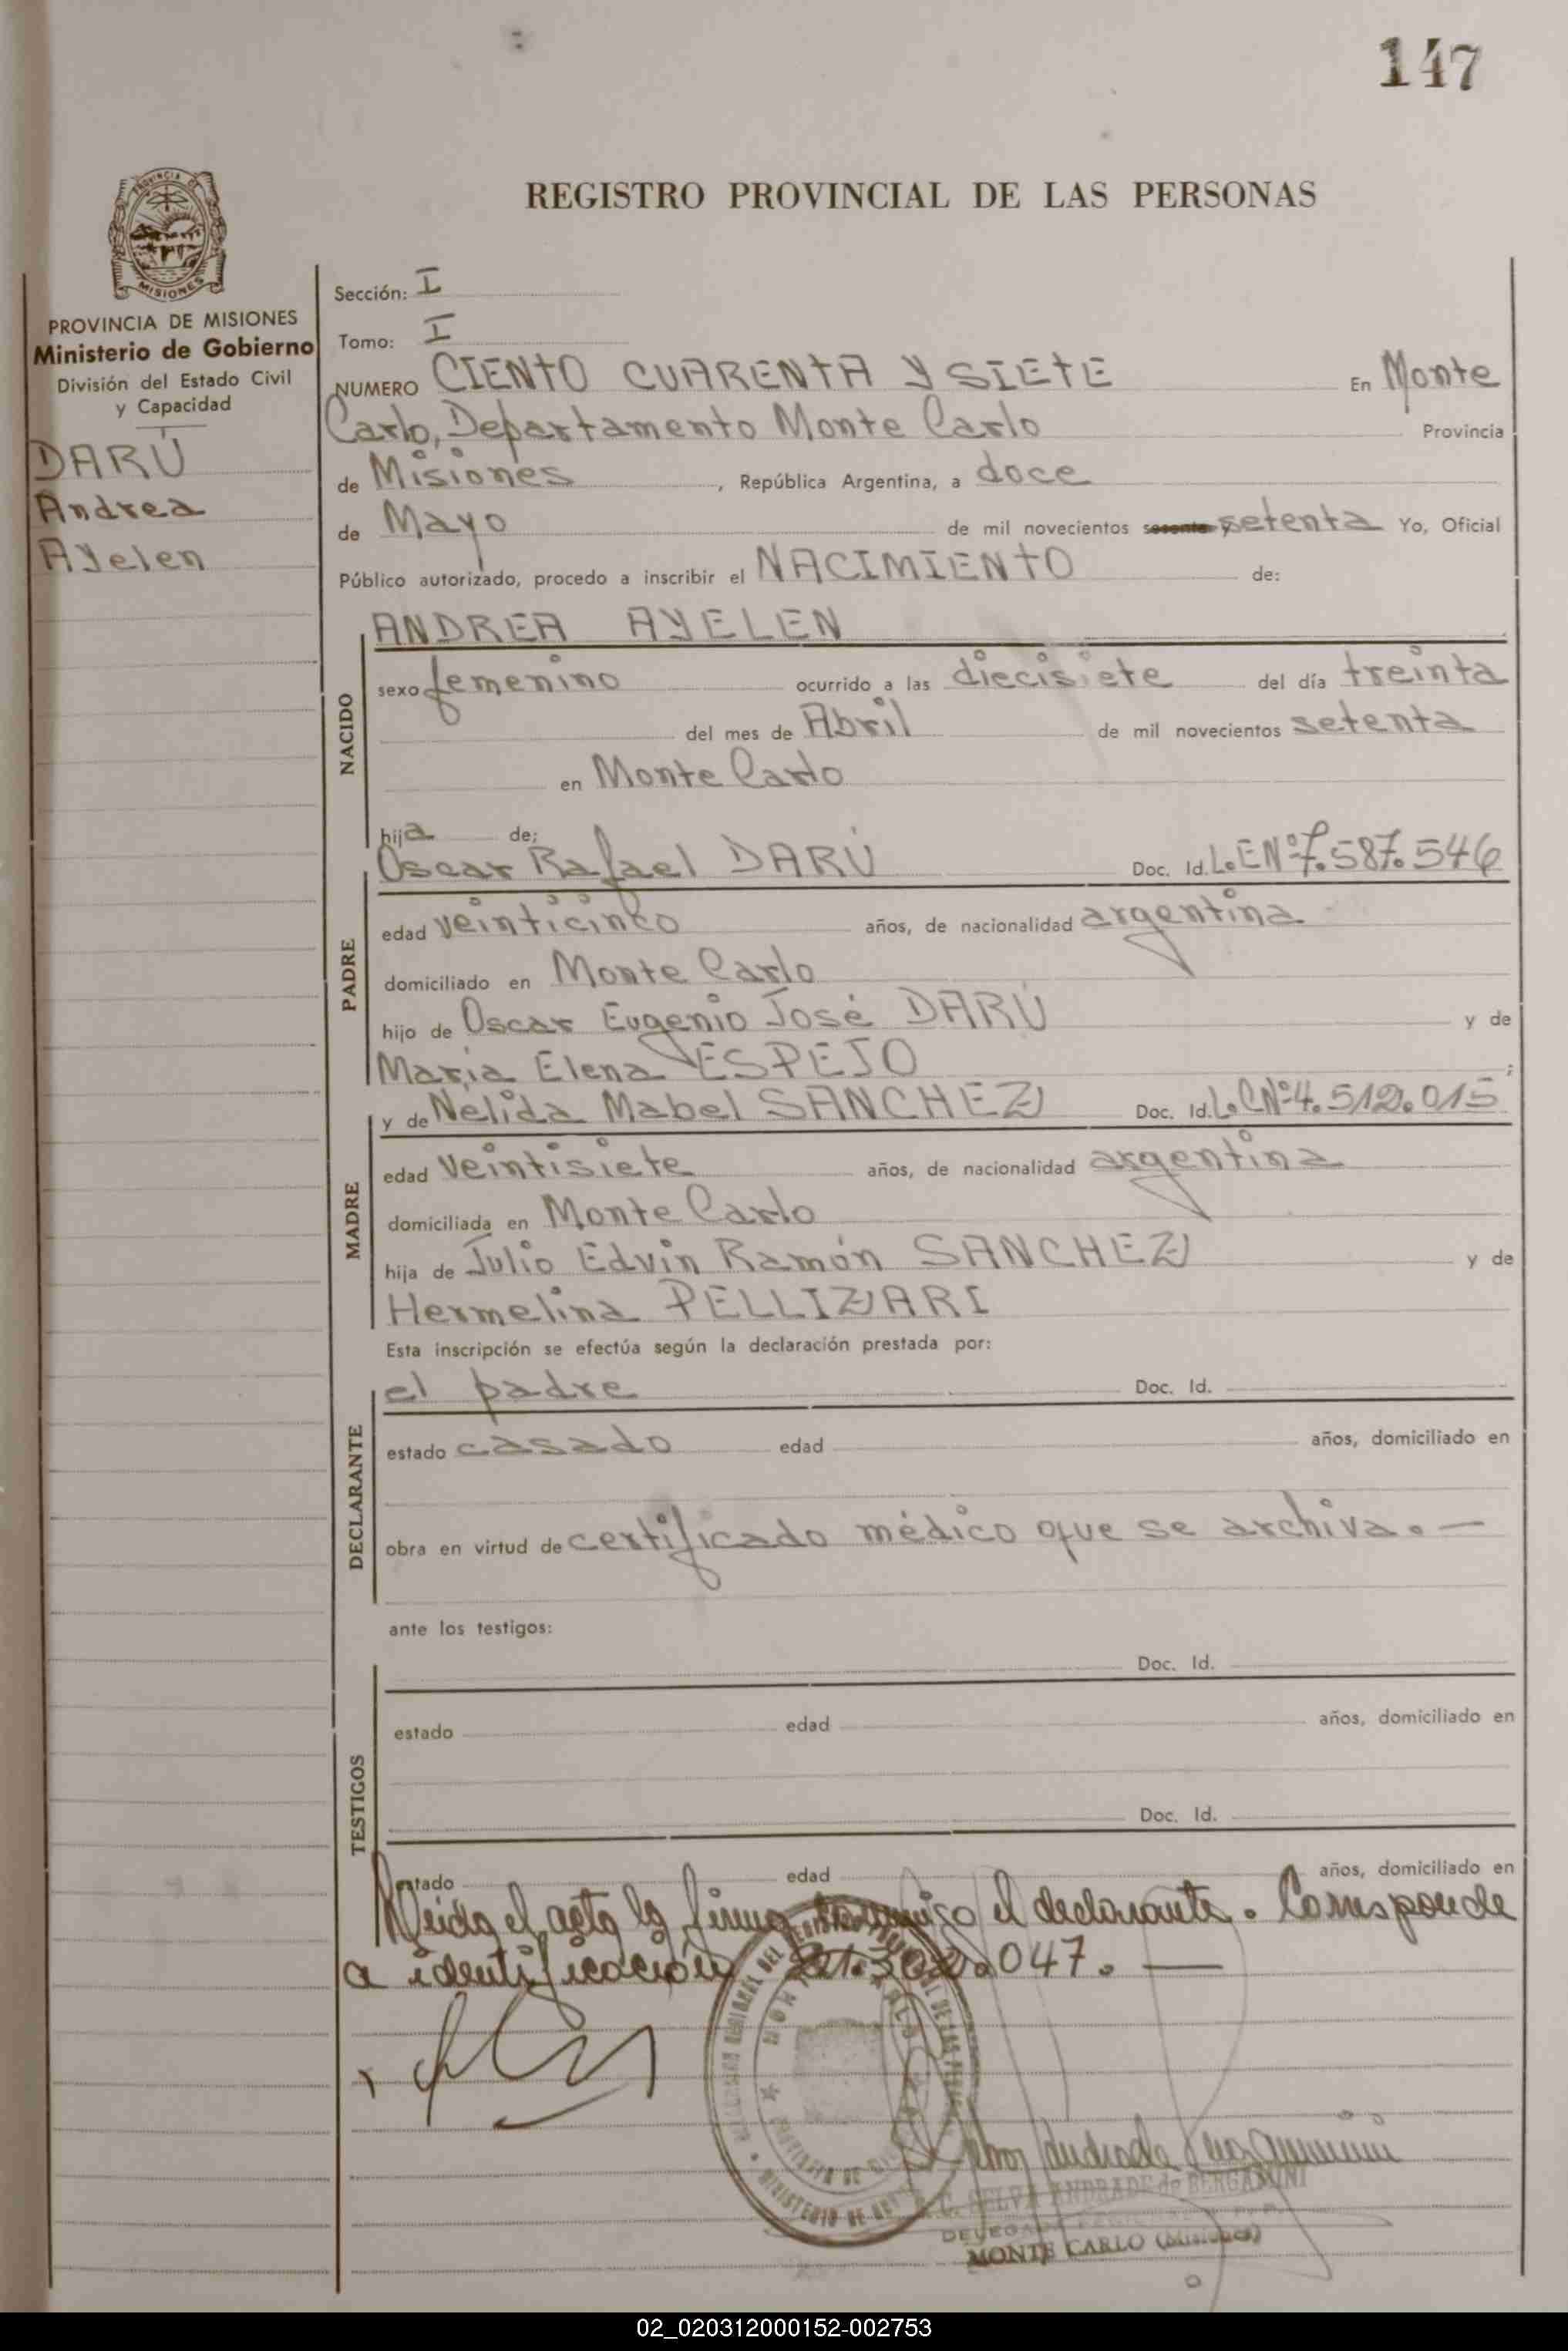 147
REGISTRO PROVINCIAL DE LAS PERSONAS
PROVINCIA DE MISIONES
PROVINCIA DE MISIONES
Ministerio de Gobierno
División del Estado Civil
y Capacidad
DARÚ
Andrea
Ayelen
Sección: I
Tomo: I
NUMERO CIENTO CUARENTA Y SIETE En Monte
Carlo, Departamento Monte Carlo Provincia
de Misiones, República Argentina, a doce
de Mayo de mil novecientos sesenta y setenta Yo, Oficial
Público autorizado, procedo a inscribir el NACIMIENTO de:
NACIDO
ANDREA AYELEN
sexo femenino ocurrido a las diecisiete del día treinta
del mes de Abril de mil novecientos setenta
en Monte Carlo
hija de:
PADRE
Oscar Rafael DARÚ Doc. Id. L.E Nº 7.587.546
edad veinticinco años, de nacionalidad argentina
domiciliado en Monte Carlo
hijo de Oscar Eugenio José DARÚ y de
María Elena ESPEJO ;
MADRE
y de Nelida Mabel SANCHEZ Doc. Id. L.C Nº 4.512.015
edad veintisiete años, de nacionalidad argentina
domiciliada en Monte Carlo
hija de Julio Edvin Ramón SANCHEZ y de
Hermelina PELLIZARI
Esta inscripción se efectúa según la declaración prestada por:
DECLARANTE
el padre Doc. Id.
estado casado edad años, domiciliado en
obra en virtud de certificado médico que se archiva.—
ante los testigos:
TESTIGOS
Doc. Id.
estado edad años, domiciliado en
Doc. Id.
estado edad años, domiciliado en
Leida el acta la firma conmigo el declarante. Corresponde
a identificación 21.302.047.—
SELVA ANDRADE de BERGAMINI
MONTE CARLO (Misiones)
02_020312000152-002753